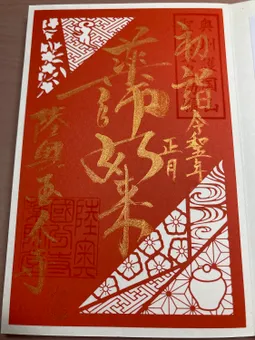 初詣
令和
年
正月
薬師如来
陸奥国分寺
陸奥
國分寺